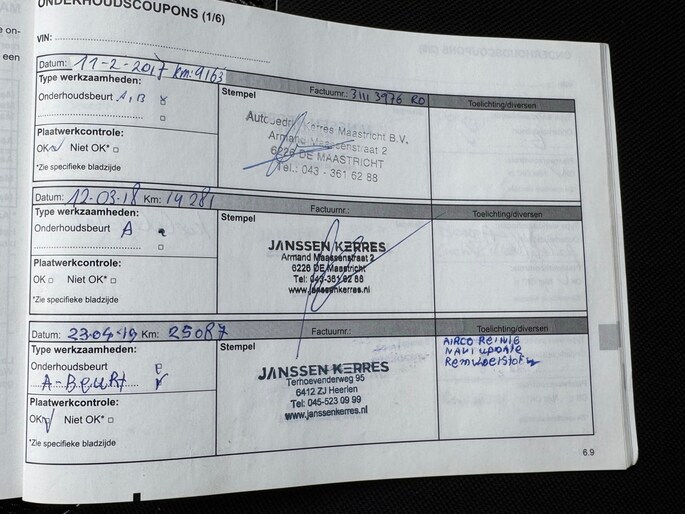 ONDERHOUDSCOUPONS (1/6)
VIN:
Datum: 11-2-2017 km: 9163
Type werkzaamheden:
Onderhoudsbeurt A, B
Plaatwerkcontrole:
OK Niet OK*
*Zie specifieke bladzijde
Stempel
Factuurnr.: 3111 3976 RO
Autobedrijf Kerres Maastricht B.V.
Armand Maassenstraat 2
6226 DE MAASTRICHT
Tel.: 043 - 361 62 88
Toelichting/diversen
Datum: 12-03-18 Km: 14281
Type werkzaamheden:
Onderhoudsbeurt A
Plaatwerkcontrole:
OK Niet OK*
*Zie specifieke bladzijde
Stempel
Factuurnr.:
JANSSEN KERRES
Armand Maassenstraat 2
6226 DE Maastricht
Tel: 043-361 62 88
www.janssenkerres.nl
Toelichting/diversen
Datum: 23-04-19 Km: 25087
Type werkzaamheden:
Onderhoudsbeurt
A-Beurt
Plaatwerkcontrole:
OK Niet OK*
*Zie specifieke bladzijde
Stempel
Factuurnr.:
JANSSEN KERRES
Terhoevenderweg 95
6412 ZJ Heerlen
Tel: 045-523 09 99
www.janssenkerres.nl
Toelichting/diversen
AIRCO REINIG
NAVI UPDATE
Remvloeistof
6.9